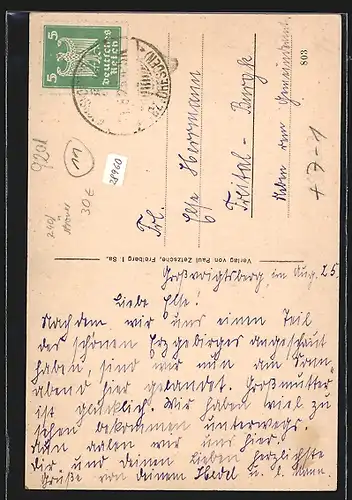 5 5
Deutsches
Reich
DRESDEN
803
9201
W
28960
240/
30€
+7-1
Frl.
Else Herrmann
Freital-Burgk
Neben dem Gemeindeamt
Verlag von Paul Zetzsche, Freiberg i. Sa.
Großvoigtsberg, im Aug. 25.
Liebe Else!
Nachdem wir uns einen Teil
des schönen Erzgebirges angeschaut
haben, sind wir nun am Sonn-
abend hier gelandet. Großmutter
ist glücklich. Wir haben viel zu
sehen bekommen unterwegs.
Nun aalen wir uns hier.
Dir und deinen Lieben herzlichste
Grüße von deinem Hedel u. l. Mann